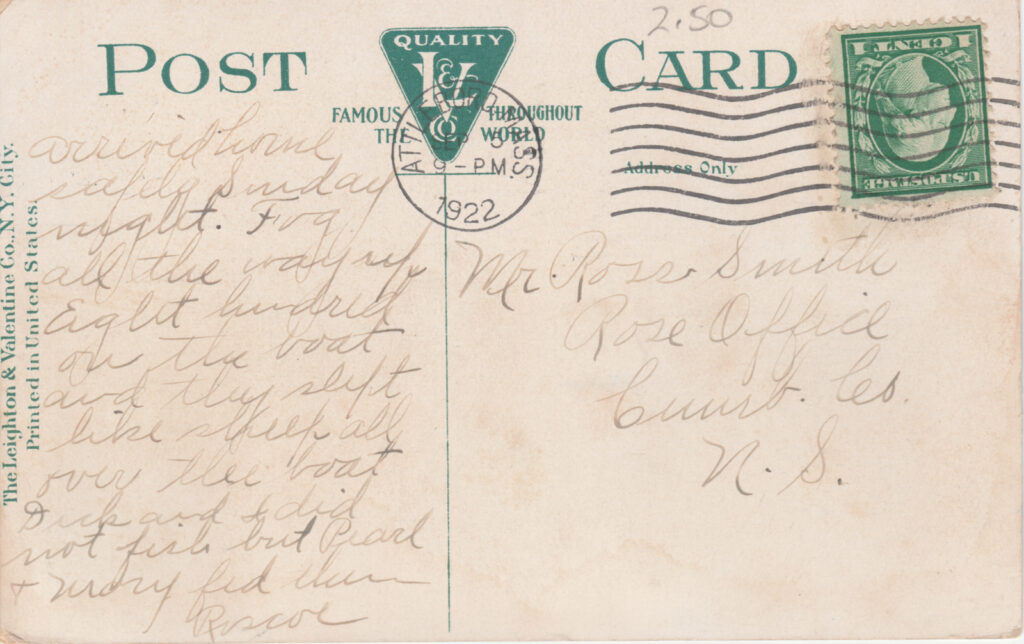 2.50
POST CARD
QUALITY
L & V
CO
FAMOUS THROUGHOUT
THE WORLD
ATTLEBORO MASS.
SEP 5
9-PM
1922
1 CENT 1
U.S. POSTAGE
Address Only
arrived home
safely Sunday
night. Fog
all the way up
Eight hundred
on the boat
and they slept
like sheep all
over the boat
Dick and I did
not fish but Pearl
+ Mary fed them
Roscoe
Mr. Ross Smith
Rose Office
Cumb. Co.
N. S.
The Leighton & Valentine Co., N.Y. City.
Printed in United States.